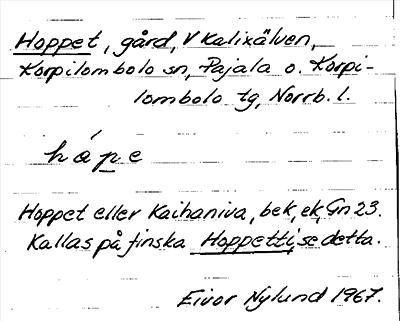 Hoppet, gård, V Kalixälven,
Korpilombolo sn, Pajala o. Korpi-
lombolo tg, Norrb. l.
hápe
Hoppet eller Kaihaniva, bek, ek, Gn 23.
Kallas på finska Hoppetti, se detta.
Eivor Nylund 1967.